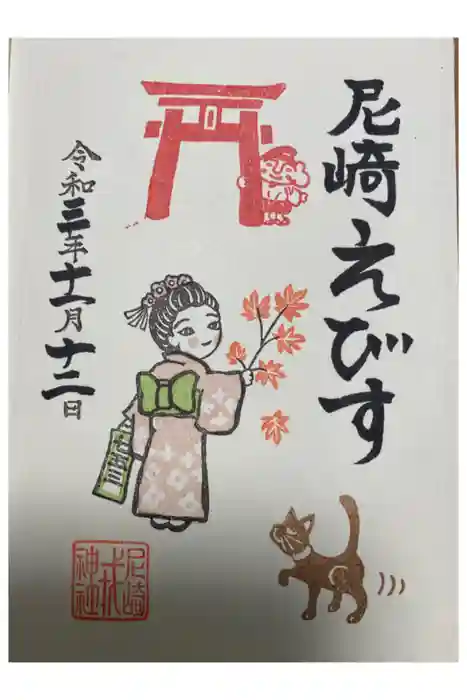 尼崎えびす
令和三年十一月十二日
尼崎
戎
神社